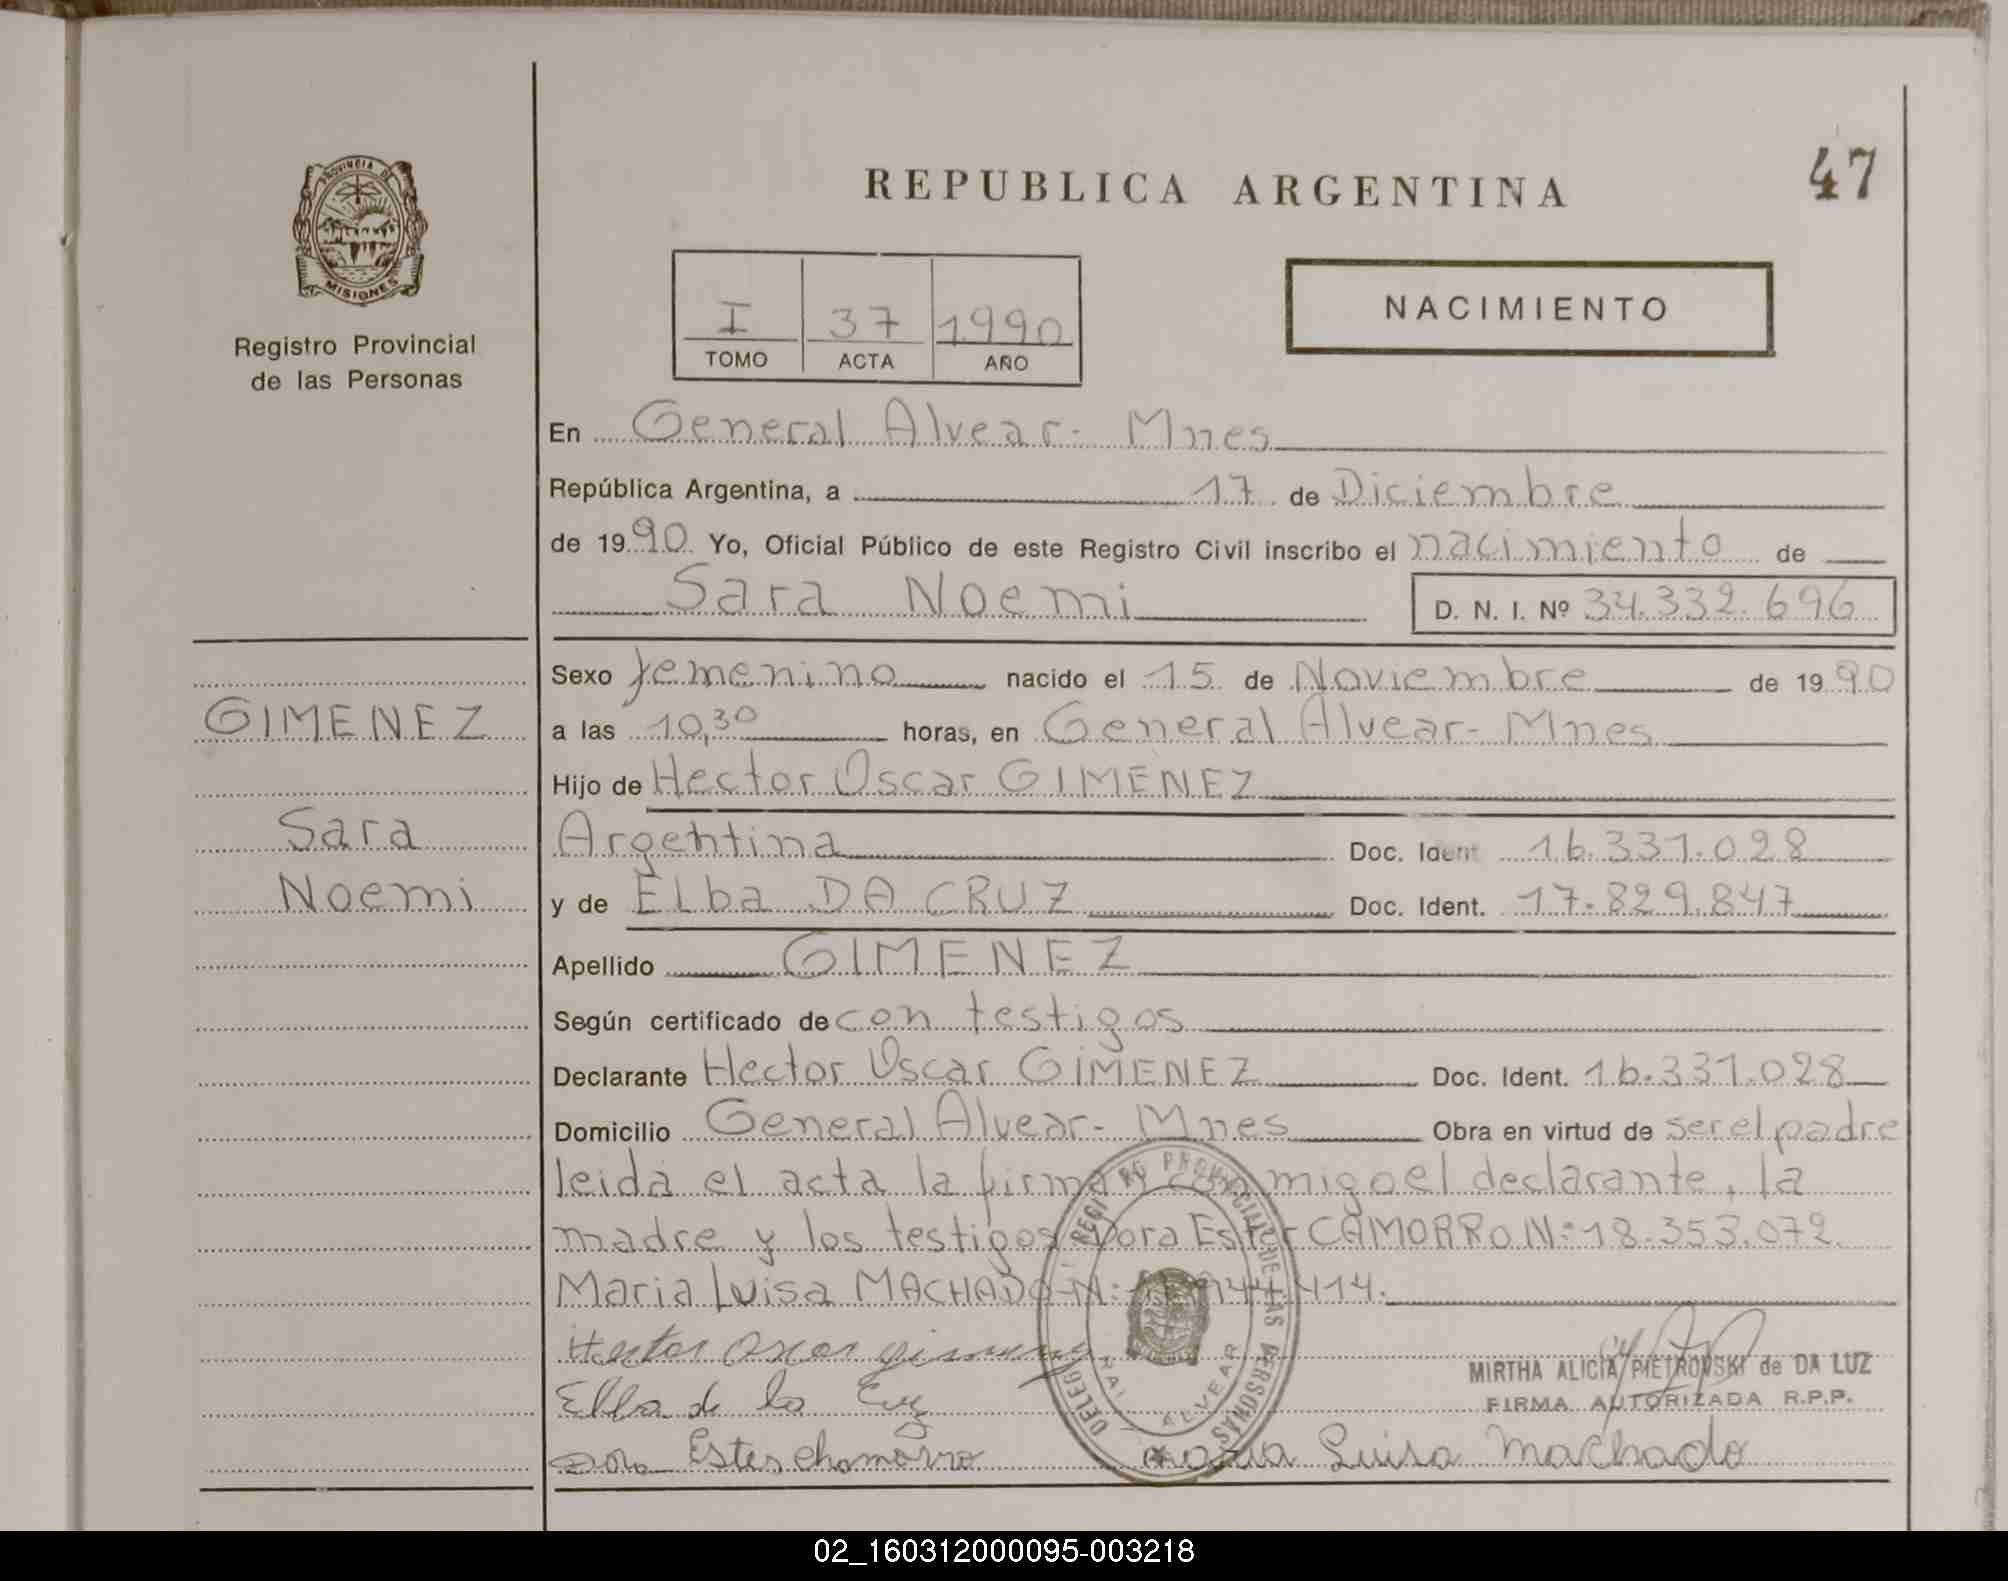 47
REPUBLICA ARGENTINA
PROVINCIA DE
MISIONES
Registro Provincial
de las Personas
I 37 1990
TOMO ACTA AÑO
NACIMIENTO
En General Alvear - Mnes
República Argentina, a 17 de Diciembre
de 1990 Yo, Oficial Público de este Registro Civil inscribo el nacimiento de
Sara Noemi D. N. I. Nº 34.332.696
GIMENEZ
Sara
Noemi
Sexo femenino nacido el 15 de Noviembre de 1990
a las 10,30 horas, en General Alvear - Mnes
Hijo de Hector Oscar GIMENEZ
Argentina Doc. Ident 16.331.028
y de Elba DA CRUZ Doc. Ident. 17.829.847
Apellido GIMENEZ
Según certificado de con testigos
Declarante Hector Oscar GIMENEZ Doc. Ident. 16.331.028
Domicilio General Alvear - Mnes Obra en virtud de ser el padre
leida el acta la firma migo el declarante, la
madre y los testigos Dora Ester CAMORRO N: 18.353.072
Maria Luisa MACHADO N: 414.
Hector Oscar gimenez
Elba de la Cruz
MIRTHA ALICIA PIETROVSKI de DA LUZ
FIRMA AUTORIZADA R.P.P.
Dora Ester chamorro Maria Luisa Machado
REGISTRO PROVINCIAL DE LAS PERSONAS
ALVEAR
02_160312000095-003218